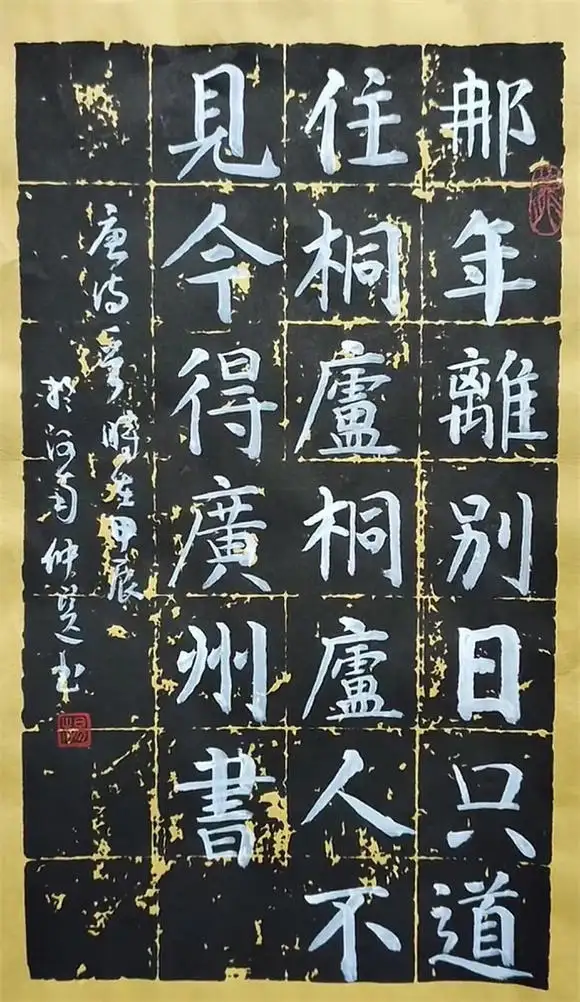 那年離別日只道
住桐廬桐廬人不
見今得廣州書
唐诗一首時在甲辰
於河南仲书